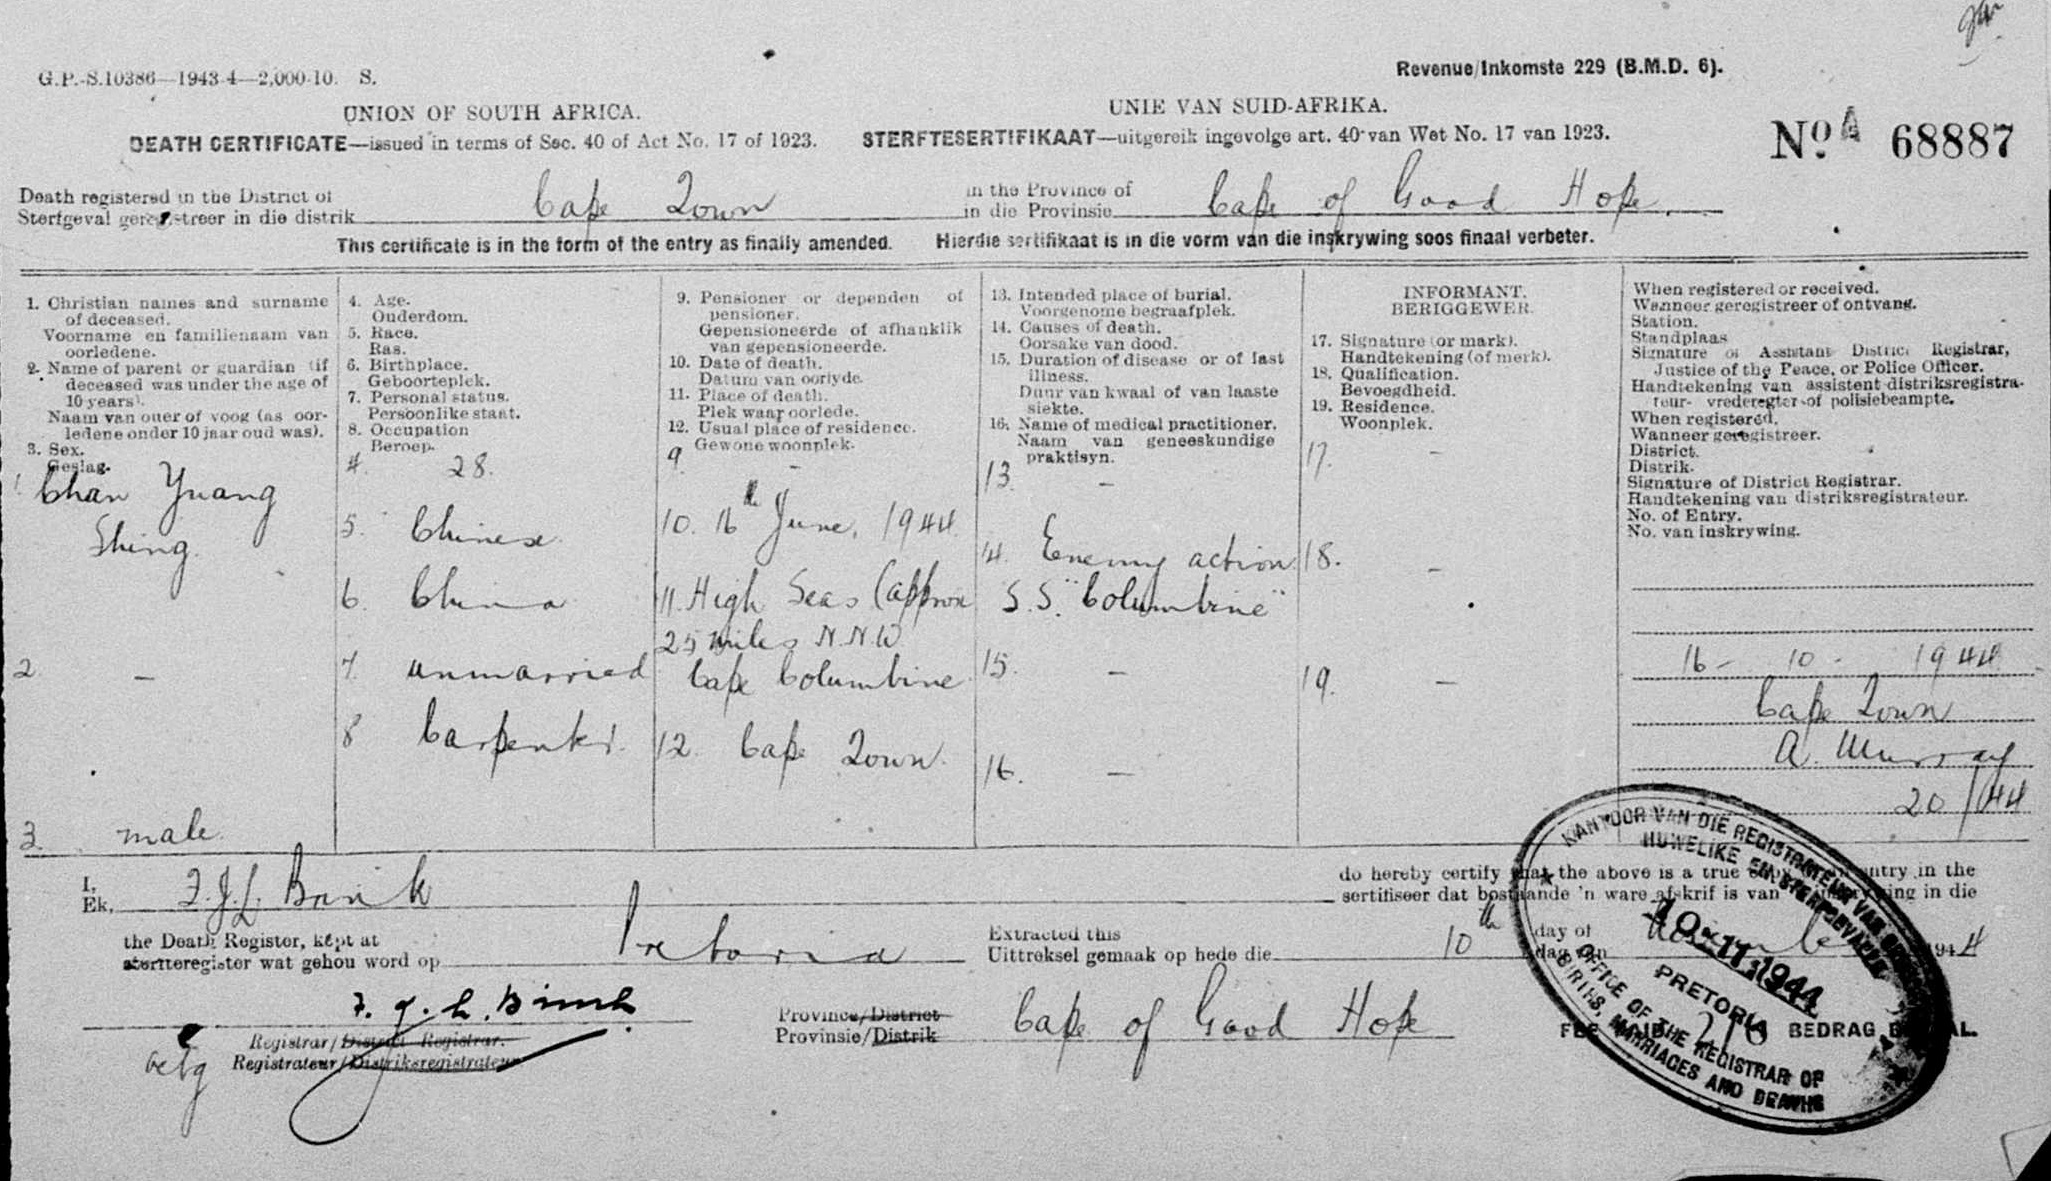 G.P.-S.10386—1943-4—2,000-10. S.
Revenue/Inkomste 229 (B.M.D. 6).
UNION OF SOUTH AFRICA.
UNIE VAN SUID-AFRIKA.
DEATH CERTIFICATE—issued in terms of Sec. 40 of Act No. 17 of 1923.
STERFTESERTIFIKAAT—uitgereik ingevolge art. 40 van Wet No. 17 van 1923.
No. A 68887
Death registered in the District of
Sterfgeval geregistreer in die distrik Cape Town
in the Province of
in die Provinsie Cape of Good Hope.
This certificate is in the form of the entry as finally amended.
Hierdie sertifikaat is in die vorm van die inskrywing soos finaal verbeter.
1. Christian names and surname
of deceased.
Voorname en familienaam van
oorledene.
2. Name of parent or guardian (if
deceased was under the age of
10 years).
Naam van ouer of voog (as oor-
ledene onder 10 jaar oud was).
3. Sex.
Geslag.
1 Chan Yuang
Shing.
2 —
3. male.
4. Age.
Ouderdom.
5. Race.
Ras.
6. Birthplace.
Geboorteplek.
7. Personal status.
Persoonlike staat.
8. Occupation
Beroep.
4. 28.
5. Chinese.
6. China
7. unmarried
8 Carpenter.
9. Pensioner or dependen of
pensioner.
Gepensioneerde of afhanklik
van gepensioneerde.
10. Date of death.
Datum van oorlyde.
11. Place of death.
Plek waar oorlede.
12. Usual place of residence.
Gewone woonplek.
9. -
10. 16th June, 1944.
11. High Seas (approx
25 miles N.N.W
Cape Columbine
12. Cape Town.
13. Intended place of burial.
Voorgenome begraafplek.
14. Causes of death.
Oorsake van dood.
15. Duration of disease or of last
illness.
Duur van kwaal of van laaste
siekte.
16. Name of medical practitioner.
Naam van geneeskundige
praktisyn.
13. -
14. Enemy action
S.S. "Columbine"
15. -
16. —
INFORMANT.
BERIGGEWER.
17. Signature (or mark).
Handtekening (of merk).
18. Qualification.
Bevoegdheid.
19. Residence.
Woonplek.
17. -
18. -
19. —
When registered or received.
Wanneer geregistreer of ontvang.
Station.
Standplaas
Signature of Assistant District Registrar,
Justice of the Peace, or Police Officer.
Handtekening van assistent-distriksregistra-
teur- vrederegter-of polisiebeampte.
When registered.
Wanneer geregistreer.
District.
Distrik.
Signature of District Registrar.
Handtekening van distriksregistrateur.
No. of Entry.
No. van inskrywing.
16 - 10 - 1944
Cape Town
A. Murray
20/44
I,
Ek, F.J.L. Brink
do hereby certify that the above is a true entry in the
sertifiseer dat bostaande 'n ware afskrif is van in die
the Death Register, kept at
sterfteregister wat gehou word op Pretoria
Extracted this
Uittreksel gemaak op hede die 10th
day of
dag van November 1944
F. J. L. Brink
Registrar/District Registrar.
Registrateur/Distriksregistrateur
Province/District
Provinsie/Distrik Cape of Good Hope
FEE PAID 2/6 BEDRAG BETAAL.
KANTOOR VAN DIE REGISTRATEUR VAN
HUWELIKE EN STERFGEVALLE
10-11-1944
PRETORIA
OFFICE OF THE REGISTRAR OF
BIRTHS, MARRIAGES AND DEATHS